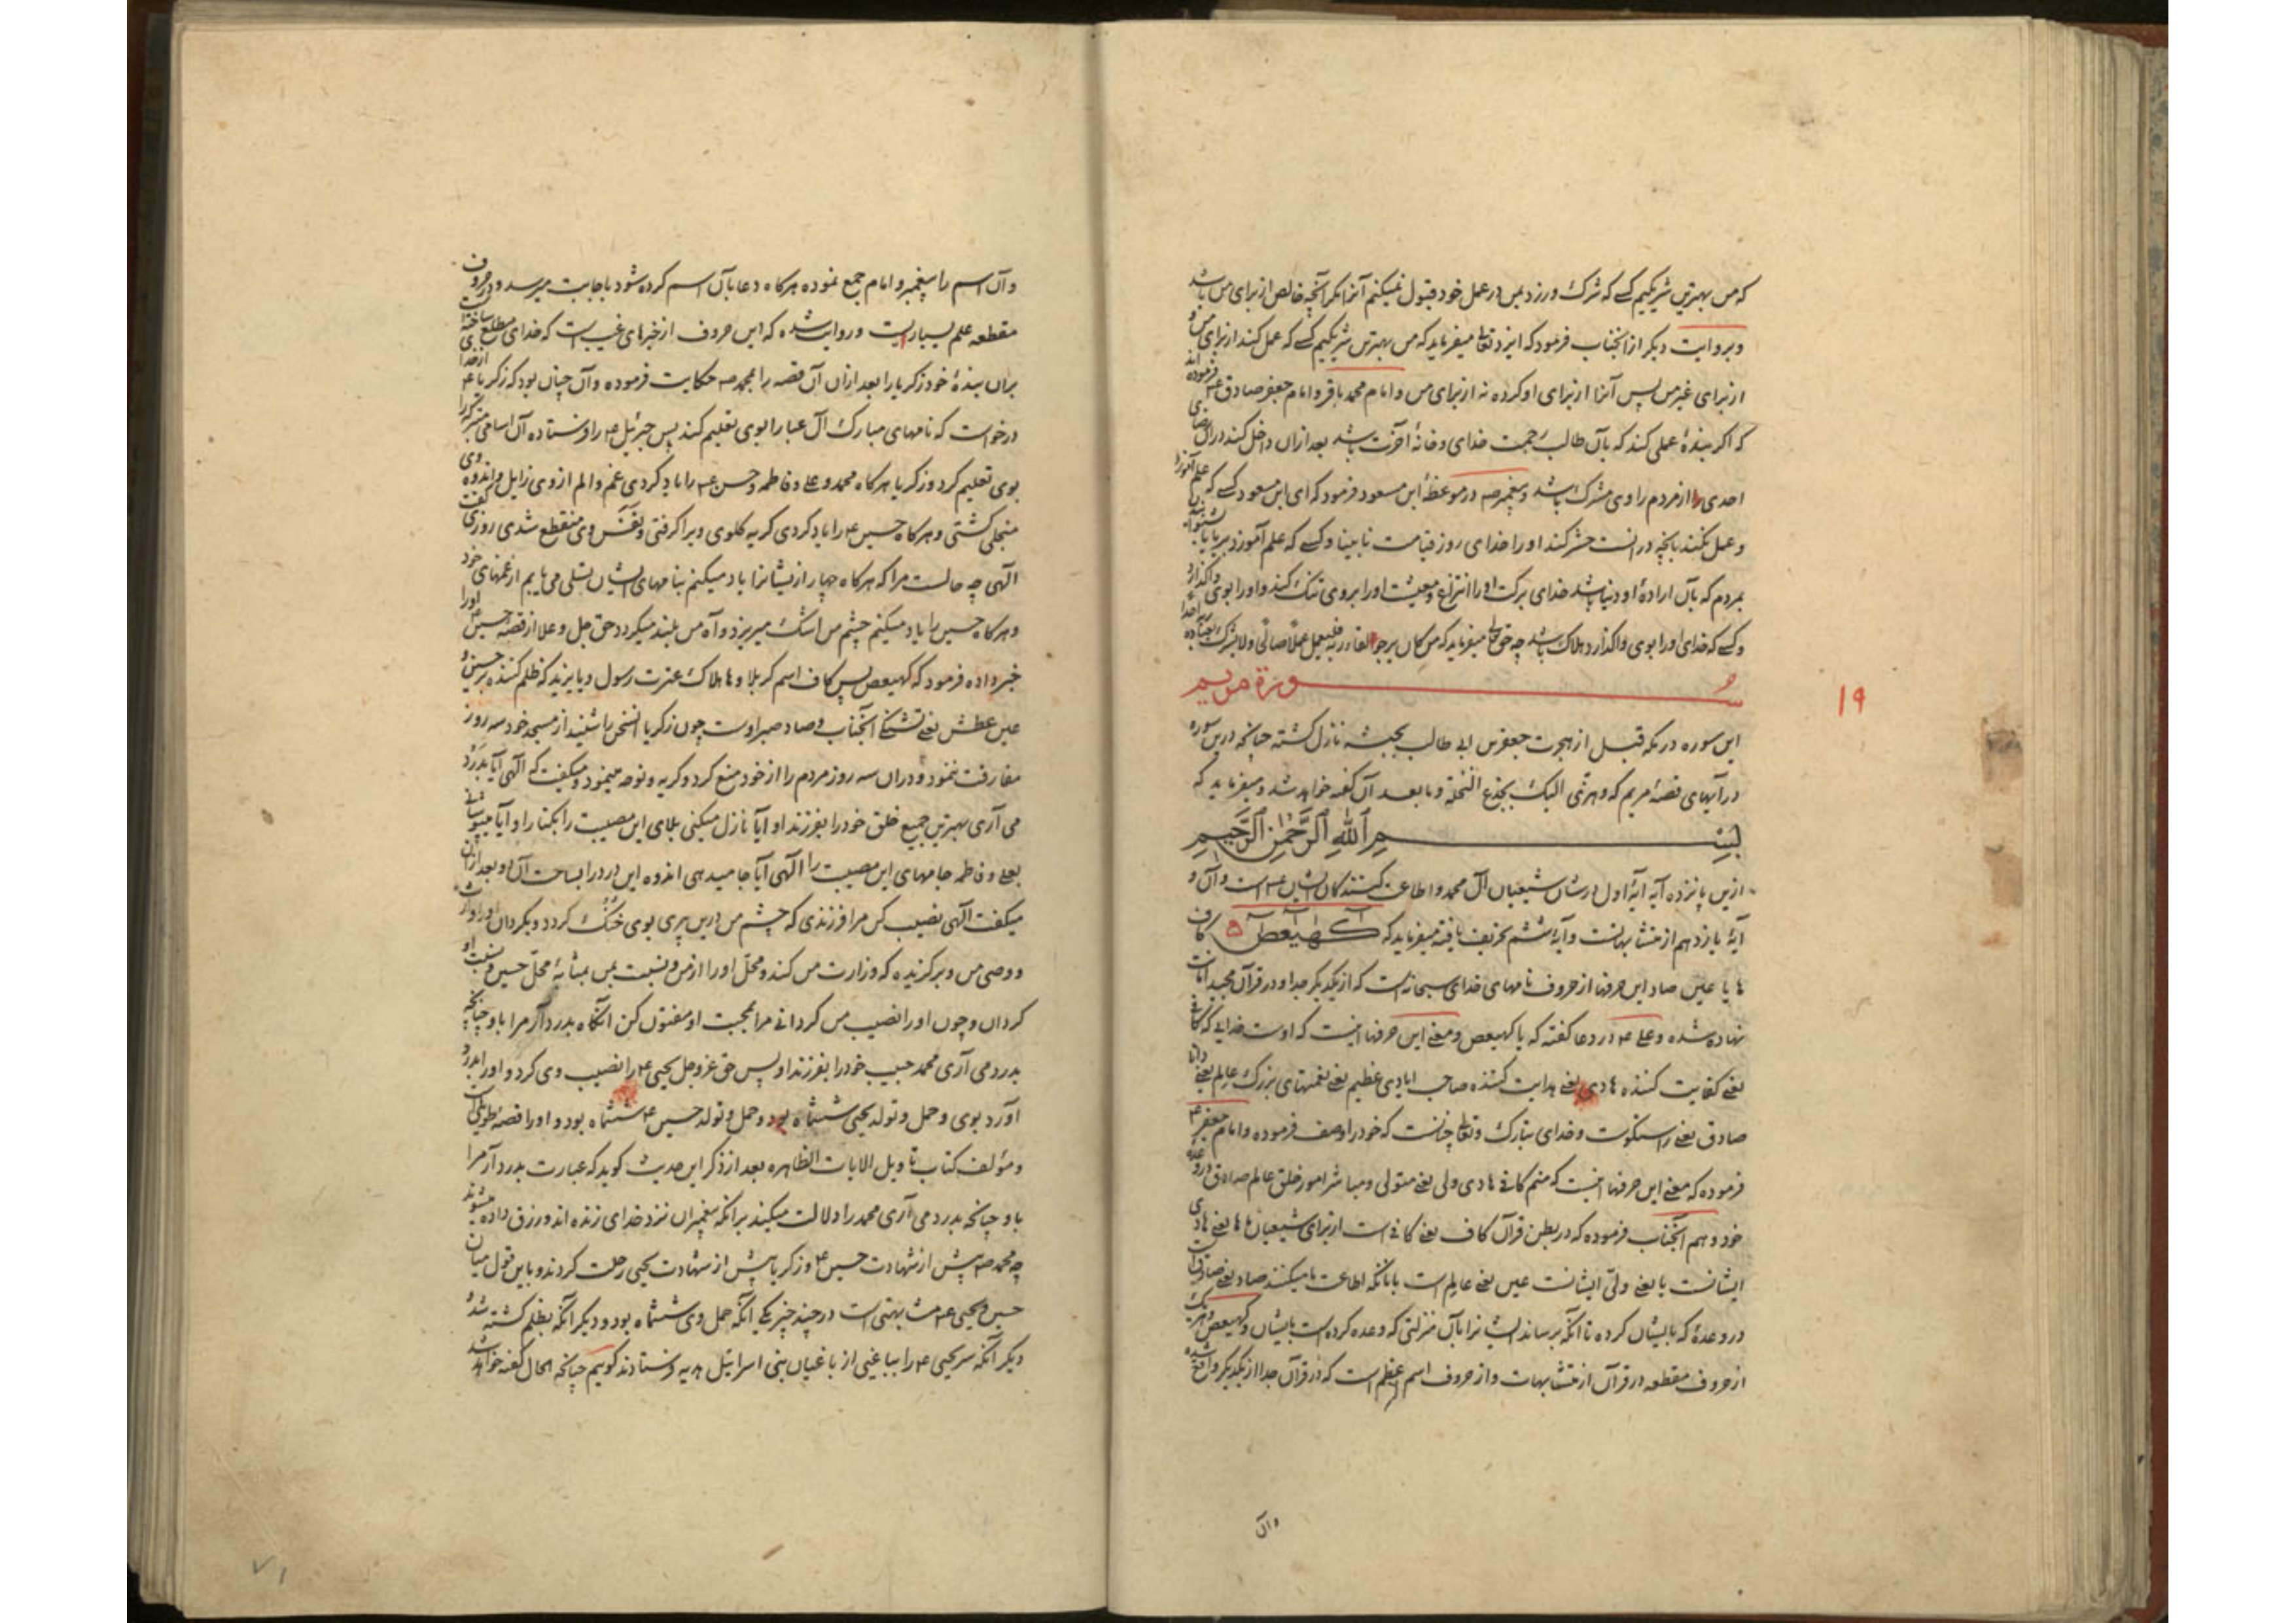 که من بهترین شریکیم کسے که شرک ورزد بمن در عمل خود قبول نمیکنم آنرا مکر آنچه خالص از برای من باشد
و بروایت دیکر ازانجناب فرمود که ایزد تعالی میفرماید که من بهترین شریکیم کسے که عمل کند از برای من و
از برای غیر من پس آنرا از برای او کرده نه از برای من و امام محمد باقر و امام جعفر صادق ع فرموده اند
که اکر بندۀ عملی کند که بآن طالب رحمت خدای و خانۀ آخرت باشد بعد ازان داخل کند دران رضای
احدی را از مردم را وی مشرک باشد و پیغمبر ص در موعظۀ ابن مسعود فرمود که ای ابن مسعود کسے که علم آموزد
و عمل نکند بآنچه درانست حشر کند او را خدای روز قیامت نابینا و کسے که علم آموزد بریا
بمردم که بآن ارادۀ او دنیا باشد خدای برکت او را انتزاع و معیشت او را بر وی تنک کند و او را بوی واکذارد
و کسے که خدای او را بوی واکذارد هلاک باشد چه حق تعالی میفرماید که من کان یرجوا لقاء ربه فلیعمل عملا صالحا ولا یشرک بعبادة ربه احدا
سورة مریم
۱۹
این سوره در مکه قبل از هجرت جعفر بن ابی طالب بحبشه نازل کشته چنانچه درین سوره
در آیهای قصۀ مریم که وهزی الیک بجذع النخلة و ما بعد آن کفته خواهد شد و میفرماید که
بسم الله الرحمن الرحیم
ازین پانزده آیه آیۀ اول در شان شیعیان آل محمد و اطاعت کنندکان ایشان ع است و آن و
آیۀ یازدهم از متشابهاتست و آیۀ ششم تحریف یافته میفرماید که کهیعص کاف
ها یا عین صاد این حرفها از حروف نامهای خدای سبحانه است که از یکدیکر جدا و در قرآن مجید امانت
نهاده شده و علے ع در دعا کفته که یا کهیعص و معنے این حرفها اینست که اوست خدایی که کافی
یعنے کفایت کننده هادی یعنے هدایت کننده صاحب ایادی عظیم یعنے نعمتهای بزرک عالم یعنے دانا
صادق یعنے راستکوست و خدای تبارک و تعالی چنانست که خود را وصف فرموده و امام جعفر ع
فرموده که معنے این حرفها اینست که منم کافے هادی ولی یعنے متولی و مباشر امور خلق عالم صادق در وعده
خود و هم آنجناب فرموده که در بطن قرآن کاف یعنے کافے است از برای شیعیان ما ها یعنے هادی
ایشانست یا یعنے ولی ایشانست عین یعنے عالم است بآنانکه اطاعت ما میکنند صاد یعنے صادق است
در وعدۀ که بایشان کرده تا آنکه برساند ایشانرا بآن منزلتی که وعده کرده است بایشان و کهیعص و هریک
از حروف مقطعه در قرآن از متشابهات و از حروف اسم اعظم است که در قرآن جدا از یکدیکر واقع شده
وآن
وآن اسم را پیغمبر و امام جمع نموده هرکاه دعا بآن اسم کرده شود باجابت میرسد و در حروف
مقطعه علم بسیاریست و روایت شده که این حروف از خبرهای غیب است که خدای مطلع ساخته
بران بندۀ خود زکریا را بعد ازان آن قصه را بمحمد ص حکایت فرموده و آن چنان بود که زکریا ع از خدا
درخواست که نامهای مبارک آل عبا را بوی تعلیم کند پس جبرئیل ع را فرستاده آن اسامی متبرکه را
بوی تعلیم کرد و زکریا هرکاه محمد و علے و فاطمه و حسن ع را یاد کردی غم و الم از وی زایل و اندوه وی
منجلی کشتی و هرکاه حسین ع را یاد کردی کریه کلوی ویرا کرفتی و نفس وی منقطع شدی روزی کفت
الهی چه حالست مرا که هرکاه چهار از یشانرا یاد میکنم بنامهای ایشان تسلی می یابم از غمهای خود
و هرکاه حسین را یاد میکنم چشم من اشک میریزد و آه من بلند میکردد حق جل و علا از قصۀ حسین ع او را
خبر داده فرمود که کهیعص پس کاف اسم کربلا و ها هلاک عترت رسول و یا یزید که ظلم کننده بر حسین
عین عطش یعنے تشنکے آنجناب و صاد صبر اوست چون زکریا این سخن را شنید از مسجد خود سه روز
مفارقت ننمود و دران سه روز مردم را از خود منع کرد و کریه و نوحه مینمود و میکفت که الهی آیا بدرد
می آری بهترین جمیع خلق خود را بفرزند او آیا نازل میکنی بلای این مصیبت را بکنار او آیا میپوشانی
بعلے و فاطمه جامهای این مصیبت را الهی آیا جا میدهی اندوه این درد را بساحت آن دو بعد ازان
میکفت الهی نصیب کن مرا فرزندی که چشم من درین پیری بوی خنک کردد و بکردان او را وارث
و وصی من و برکزیده که وزارت من کند و محل او را از من و نسبت بمن بمثابۀ محل حسین و نسبت او
کردان و چون او را نصیب من کردانی مرا بمحبت او مفتون کن آنکاه بدرد آر مرا باو چنانچه
بدرد می آری محمد حبیب خود را بفرزند او پس حق عز و جل یحیی ع را نصیب وی کرد و او را بدرد
آورد بوی و حمل و تولد یحیی ششماه بود و حمل و تولد حسین ع ششماه بود و او را قصۀ طویلی است
و مؤلف کتاب تاویل الایات الظاهره بعد از ذکر این حدیث کوید که عبارت بدرد آر مرا
باو چنانچه بدرد می آری محمد را دلالت میکند برانکه پیغمبران نزد خدای زنده اند و رزق داده میشوند
چه محمد ص پیش از شهادت حسین ع و زکریا پیش از شهادت یحیی رحلت کردند و باین قول میان
حسین و یحیی ع مشابهتی است در چند چیز یکے آنکه حمل وی ششماه بود و دیکر آنکه بظلم کشته شد
دیکر آنکه سر یحیی ع را بباغیی از باغیان بنی اسرائیل هدیه فرستادند کویم چنانچه الحال کفته خواهد شد
۷۱